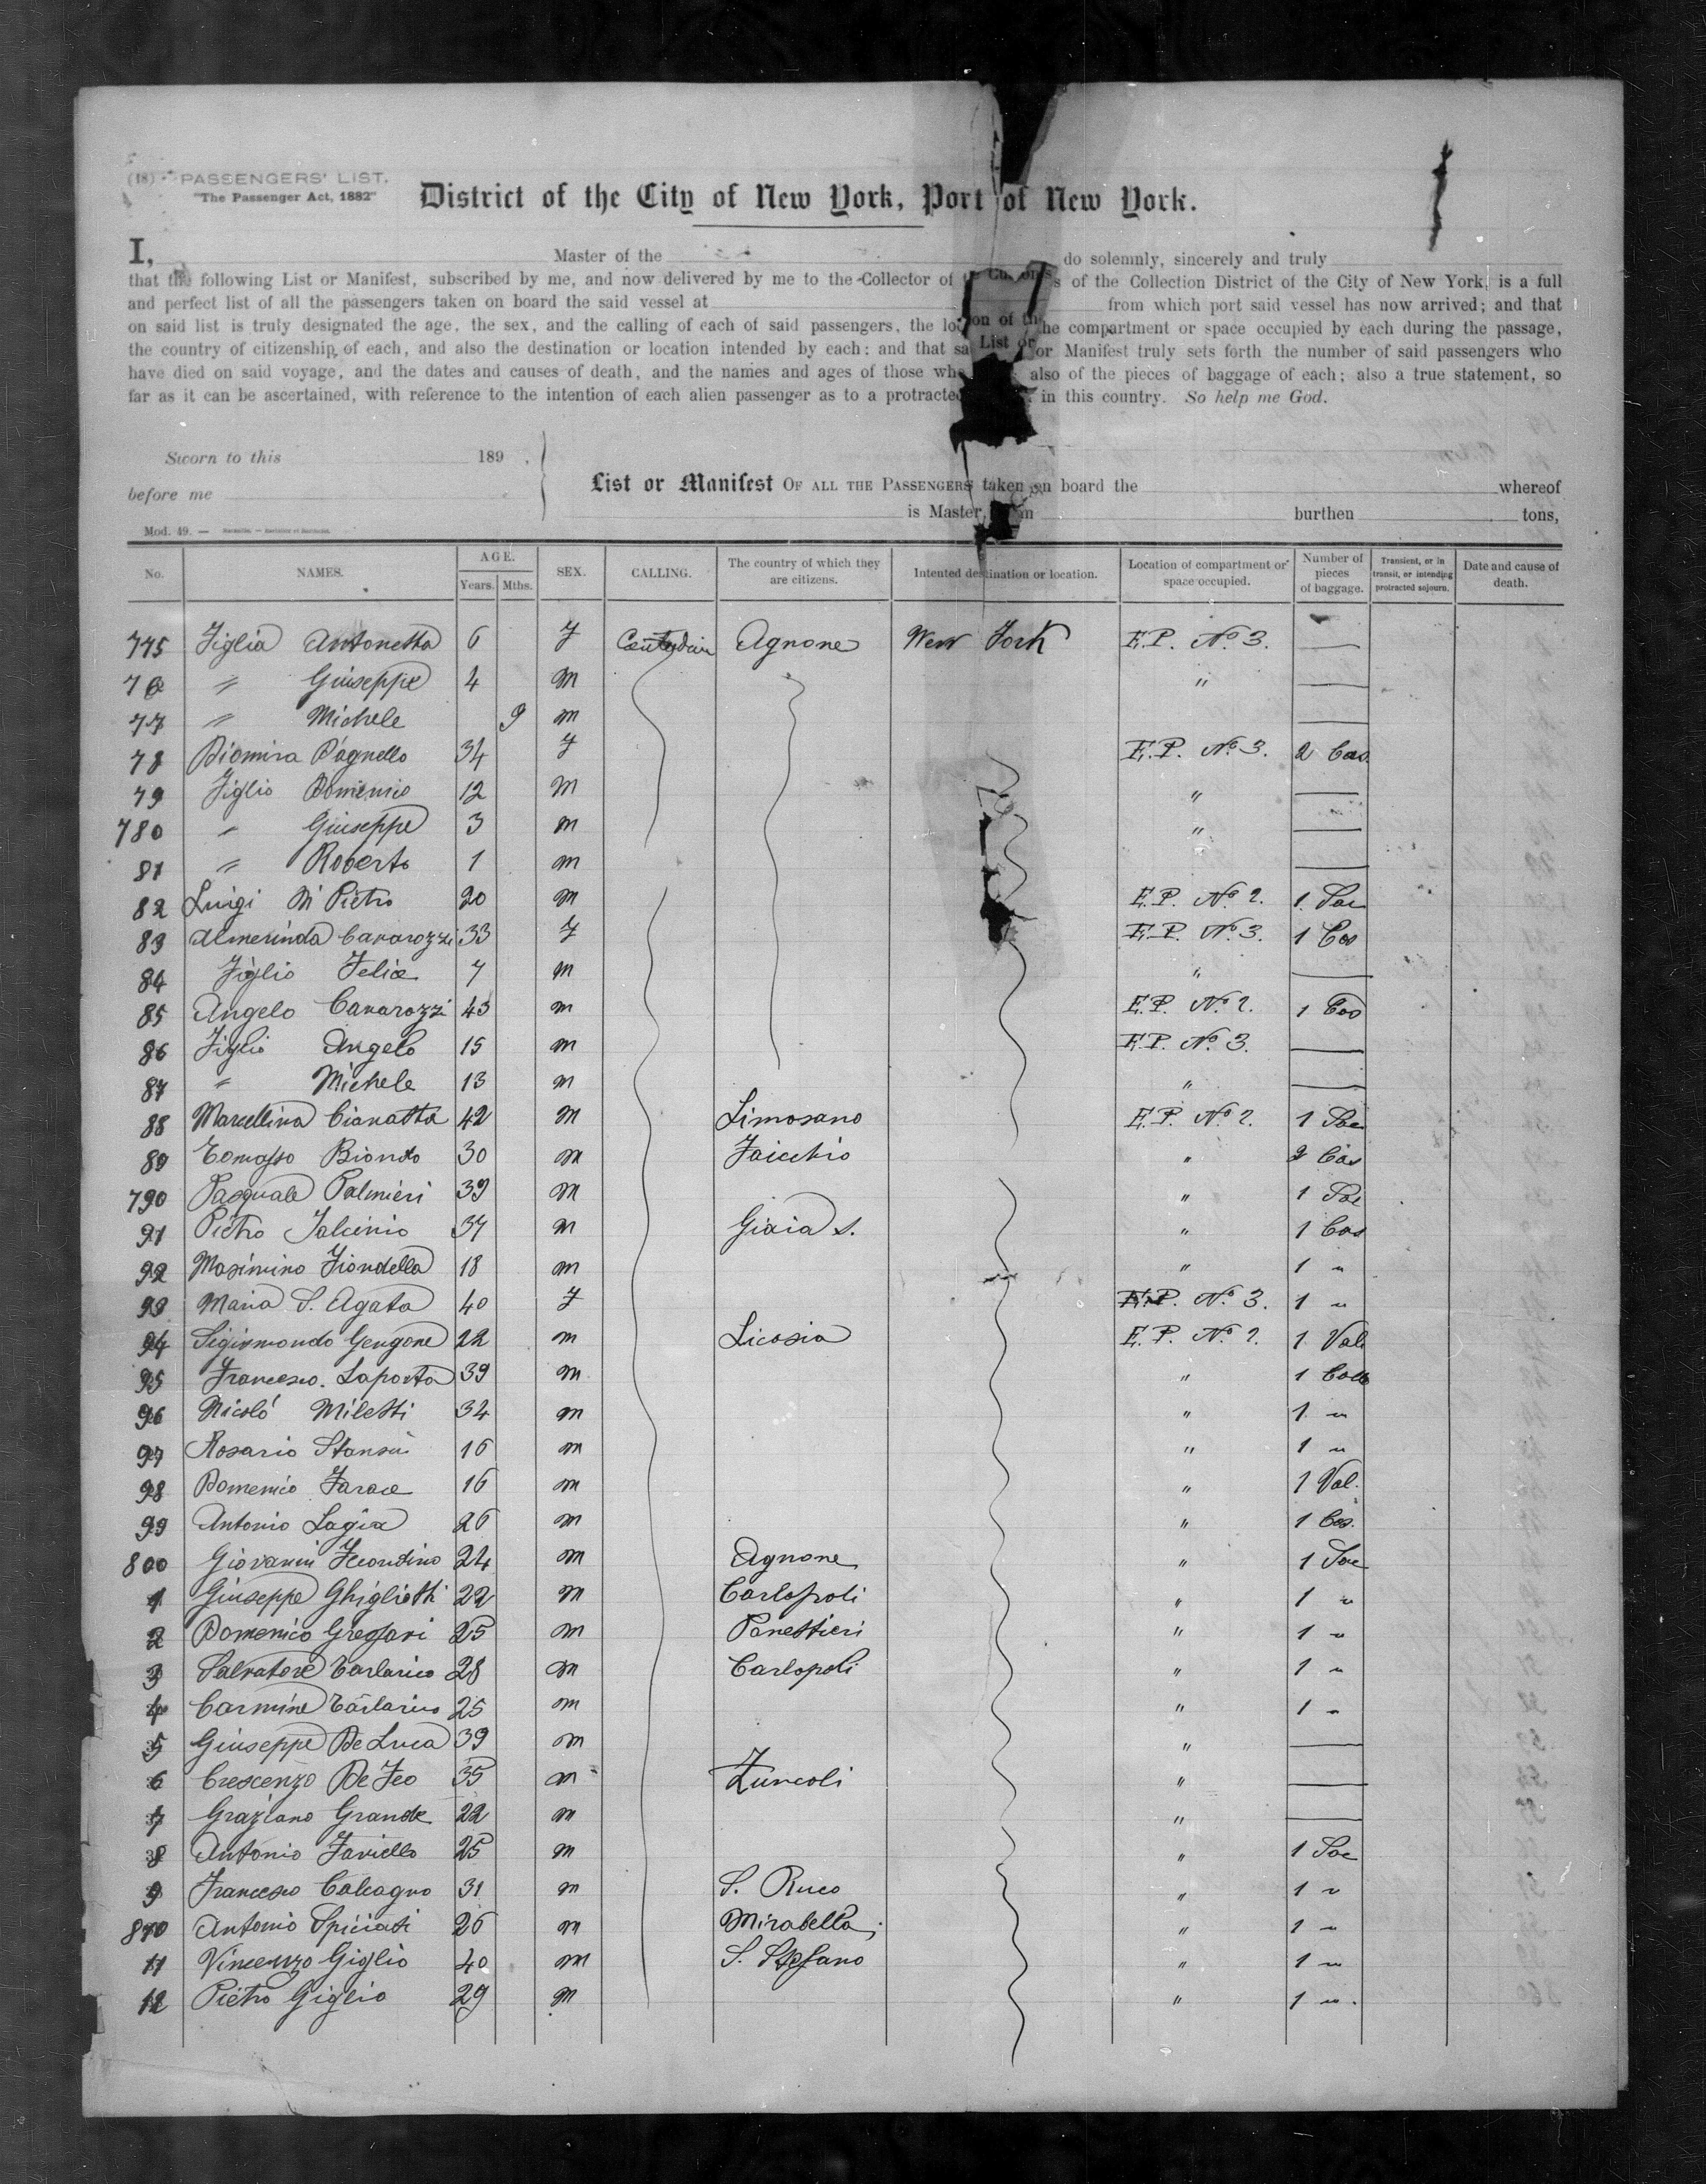 (18) PASSENGERS' LIST.
"The Passenger Act, 1882"
District of the City of New York, Port of New York.
I, Master of the do solemnly, sincerely and truly
that the following List or Manifest, subscribed by me, and now delivered by me to the Collector of the Customs of the Collection District of the City of New York, is a full
and perfect list of all the passengers taken on board the said vessel at from which port said vessel has now arrived; and that
on said list is truly designated the age, the sex, and the calling of each of said passengers, the location of the compartment or space occupied by each during the passage,
the country of citizenship of each, and also the destination or location intended by each: and that said List or Manifest truly sets forth the number of said passengers who
have died on said voyage, and the dates and causes of death, and the names and ages of those who also of the pieces of baggage of each; also a true statement, so
far as it can be ascertained, with reference to the intention of each alien passenger as to a protracted in this country. So help me God.
Sworn to this 189 .
before me
List or Manifest OF ALL THE PASSENGERS taken on board the whereof
is Master, burthen tons,
Mod. 49. —
No. NAMES. AGE. Years. Mths. SEX. CALLING. The country of which they are citizens. Intented destination or location. Location of compartment or space occupied. Number of pieces of baggage. Transient, or in transit, or intending protracted sojourn. Date and cause of death.
775 Figlia Antonetta 6 F Agnone New York E.P. No. 3. —
76 " Giuseppe 4 m " —
77 " Michele 9 m —
78 Diomira D'agnello 34 F E.P. No. 3. 2 Cas.
79 Figlio Domenico 12 m " —
780 " Giuseppe 3 m " —
81 " Roberto 1 m —
82 Luigi Di Pietro 20 m E.P. No. 2. 1 Sac
83 Almerinda Cavarozzi 33 F E.P. No. 3. 1 Cas
84 Figlio Felice 7 m " —
85 Angelo Cavarozzi 43 m E.P. No. 2. 1 Cas
86 Figlio Angelo 15 m E.P. No. 3. —
87 " Michele 13 m " —
88 Marcellino Cianatta 42 m Limosano E.P. No. 2. 1 Sac
89 Tomasso Biondo 30 m Faicchio " 2 Cas
790 Pasquale Palmieri 39 m " 1 Sac
91 Pietro Falcinio 37 m Gioia S. " 1 Cas
92 Masimino Fiondella 18 m " 1 "
93 Maria S. Agata 40 F E.P. No. 3. 1 "
94 Sigismondo Gengone 22 m Licosia E.P. No. 2. 1 Val
95 Francesco Laporta 39 m " 1
96 Nicoló Miletti 34 m " 1 "
97 Rosario 16 m " 1 "
98 Domenico Farace 16 m " 1 Val.
99 Antonio 26 m " 1 Cas.
800 Giovanni 24 m Agnone " 1 Sac
1 Giuseppe Ghigliotti 22 m Carlopoli " 1 "
2 Domenico 25 m Panettieri " 1 "
3 Salvatore Tarlarico 28 m Carlopoli " 1 "
4 Carmine Tarlarico 25 m " 1 "
5 Giuseppe De Luca 39 m " —
6 Crescenzo De Feo 35 m Zuncoli " —
7 Graziano Grande 22 m " —
8 Antonio Faviello 25 m " 1 Sac
9 Francesco Calcagno 31 m S. Ruco " 1 "
810 Antonio Spiciati 26 m Mirabella " 1 "
11 Vincenzo Giglio 40 m S. Stefano " 1 "
12 Pietro Giglio 29 m " 1 "